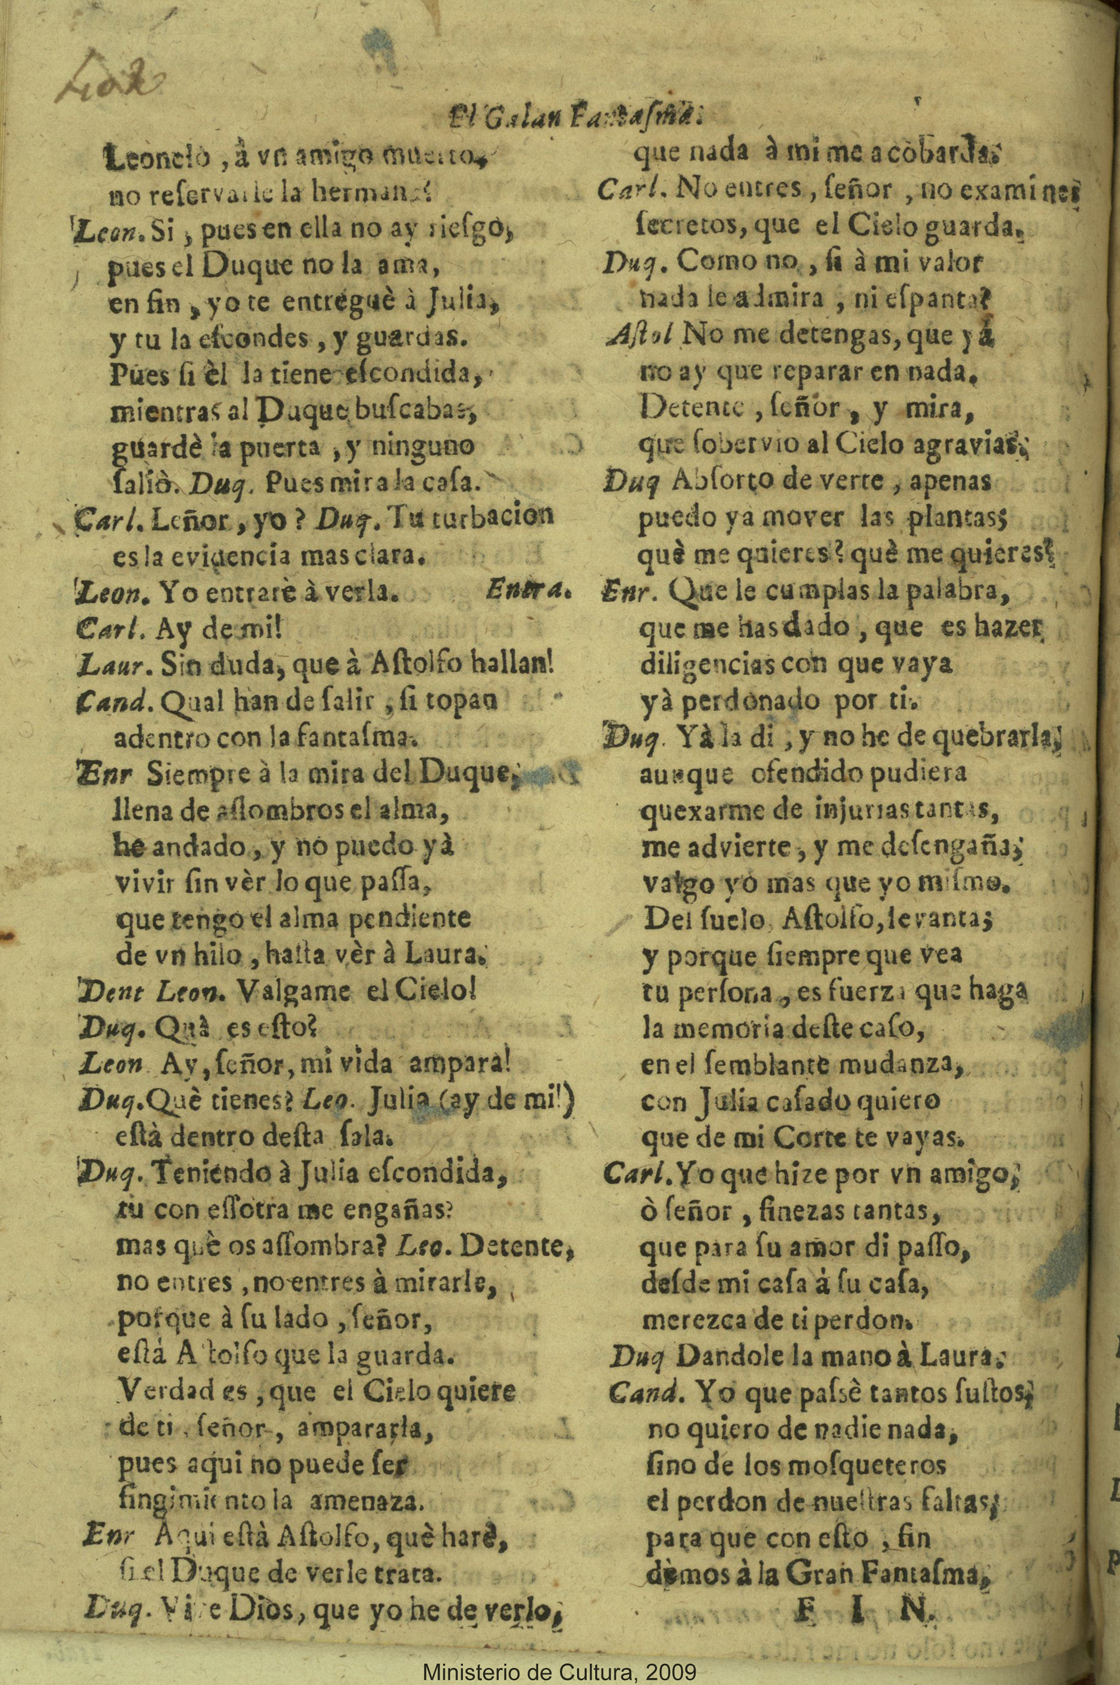 El Galan Fantasma.
Leonelo, à vn amigo muerto,
no reservarle la hermana?
Leon. Si, pues en ella no ay riesgo,
pues el Duque no la ama,
en fin, yo te entreguè à Julia,
y tu la escondes, y guardas.
Pues si èl la tiene escondida,
mientras al Duque buscabas,
guardè la puerta, y ninguno
saliò. Duq. Pues mira la casa.
Carl. Leñor, yo? Duq. Tu turbacion
es la evidencia mas clara.
Leon. Yo entrarè à verla. Entra.
Carl. Ay de mi!
Laur. Sin duda, que à Astolfo hallan!
Cand. Qual han de salir, si topan
adentro con la fantasma.
Enr Siempre à la mira del Duque,
llena de assombros el alma,
he andado, y no puedo yà
vivir sin vèr lo que passa,
que tengo el alma pendiente
de vn hilo, hasta vèr à Laura.
Dent Leon. Valgame el Cielo!
Duq. Què es esto?
Leon Ay, señor, mi vida ampara!
Duq. Què tienes? Leo. Julia (ay de mi!)
està dentro desta sala.
Duq. Teniendo à Julia escondida,
tu con essotra me engañas?
mas què os assombra? Leo. Detente,
no entres, no entres à mirarle,
porque à su lado, señor,
està Astolfo que la guarda.
Verdad es, que el Cielo quiere
de ti, señor, ampararla,
pues aqui no puede ser
fingimiento la amenaza.
Enr Aqui està Astolfo, què harè,
si el Duque de verle trata.
Duq. Vive Dios, que yo he de verlo,
que nada à mi me acobarda;
Carl. No entres, señor, no examines
secretos, que el Cielo guarda.
Duq. Como no, si à mi valor
nada le admira, ni espanta?
Astol No me detengas, que yà
no ay que reparar en nada.
Detente, señor, y mira,
que sobervio al Cielo agravias;
Duq Absorto de verte, apenas
puedo ya mover las plantas;
què me quieres? què me quieres?
Enr. Que le cumplas la palabra,
que me has dado, que es hazer
diligencias con que vaya
yà perdonado por ti.
Duq. Yà la di, y no he de quebrarla;
aunque ofendido pudiera
quexarme de injurias tantas,
me advierte, y me desengaña;
valgo yo mas que yo mismo.
Del suelo, Astolfo, levanta;
y porque siempre que vea
tu persona, es fuerza que haga
la memoria deste caso,
en el semblante mudanza,
con Julia casado quiero
que de mi Corte te vayas.
Carl. Yo que hize por vn amigo,
ò señor, finezas tantas,
que para su amor di passo,
desde mi casa à su casa,
merezca de ti perdon.
Duq Dandole la mano à Laura.
Cand. Yo que passè tantos sustos,
no quiero de nadie nada,
sino de los mosqueteros
el perdon de nuestras faltas;
para que con esto, fin
dèmos à la Gran Fantasma,
F I N.
Ministerio de Cultura, 2009